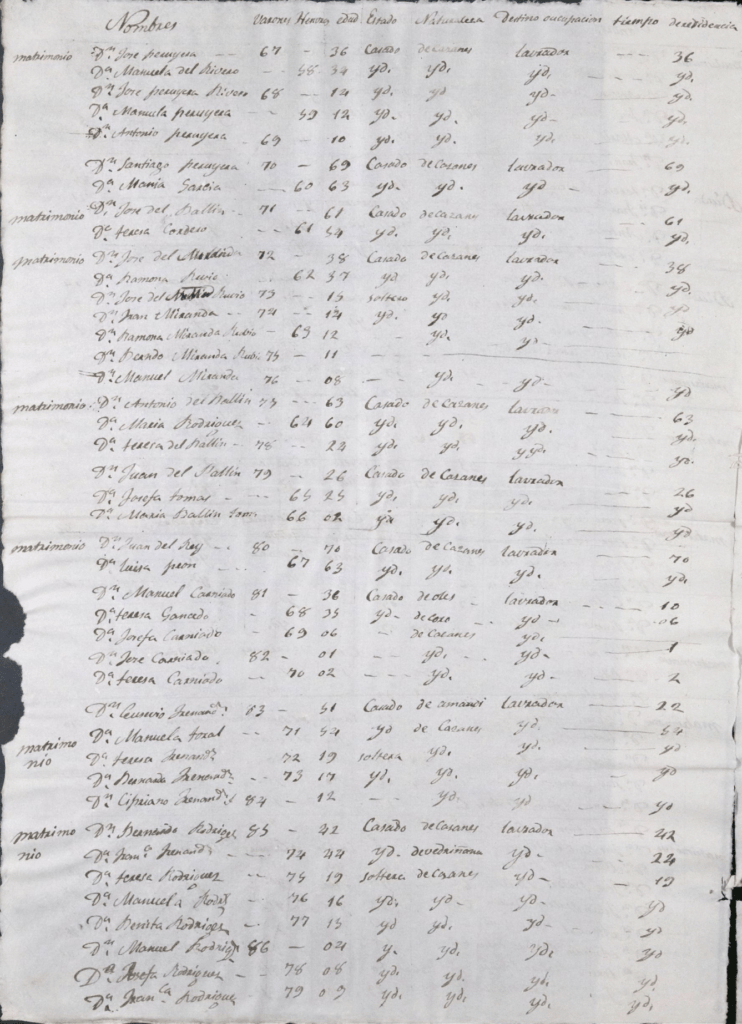 Nombres Varones Hembras edad Estado Naturaleza Destino ocupacion tiempo de residencia
matrimonio Dn. Jose peruyera 67 - 36 Casado de cazanes lavrador 36
Da. Manuela del Rivero 58 34 yd. yd. yd. yd.
Dn. Jose peruyera Rivero 68 - 14 yd. yd yd - yd
Da. Manuela peruyera 59 12 yd. yd. yd. yd.
Dn. Antonio peruyera 69 - 10 yd. yd. yd. yd.
Dn. Santiago peruyera 70 - 69 Casado de Cazanes lavrador 69
Da. Maria Garcia 60 63 yd. yd. yd - yd.
matrimonio Dn. Jose del Ballin 71 - 61 Casado de cazanes lavrador 61
Da. teresa Cordero 61 54 yd. yd. yd. yd.
matrimonio Dn. Jose del Miranda 72 - 38 Casado de Cazanes lavrador 38
Da. Ramona Ruvio 62 37 yd yd. yd. yd.
Dn. Jose del Ruvio 73 - 15 soltero yd. yd. yd
Dn. Juan Miranda 74 - 14 yd. yd yd.
Da. Ramona Miranda Ruvio - 63 12 - yd. yd - yd
Dn. Berndo Miranda Ruvio 75 - 11 -
Dn. Manuel Miranda 76 - 08 - yd. yd - yd
matrimonio Dn. Antonio del Ballin 77 - 63 Casado de Cazanes lavrador 63
Da. Maria Rodriguez 64 60 yd. yd. yd. yd.
teresa del Ballin - 78 - 22 yd. yd. yd. yd.
Dn. Juan del Ballin 79 - 26 Casado de Cazanes lavrador 26
Da. Josefa tomas - 65 25 yd. yd. yd. yd
Da. Maria Ballin tomas 66 02 yd yd. yd. yd
matrimonio Dn. Juan del Rey 80 - 70 Casado de Cazanes lavrador 70
Da. luisa peon 67 63 yd. yd. yd. yd.
Dn. Manuel Carniado 81 - 36 Casado de oles lavrador 10
Da. teresa Gancedo - 68 35 yd - yd - 06
Da. Josefa Carniado - 69 06 - de Cazanes yd.
Dn. Jose Carniado 82 - 01 - yd. yd - 1
Da. teresa Carniado - 70 02 - yd. yd. 2
Dn. Fernandz. 83 - 51 Casado de amandi lavrador 22
matrimonio Da. Manuela toral - 71 54 yd de Cazanes yd. 54
Da. teresa Fernandz 72 19 soltera yd. yd. yd
Da. Bernarda Fernandz - 73 17 yd. yd. yd. yd
Dn. Cipriano Fernandz 84 - 12 - yd. yd - yd
matrimonio Dn. Bernardo Rodrigez 85 - 42 Casado de Cazanes lavrador 42
Da. Franca. Fernandz - 74 44 yd. de vedriñana yd - 24
Da. teresa Rodriguez - 75 19 soltera de Cazanes yd - 19
Da. Manuela Rodrz - 76 16 yd. yd - yd - yd
Da. Benita Rodriguez - 77 15 yd yd. yd - yd
Dn. Manuel Rodrigz 86 - 04 y. yd. yd. yd.
Da. Josefa Rodriguez - 78 08 yd. yd. yd. yd.
Da. Franca. Rodriguez 79 09 yd. yd. yd. yd.